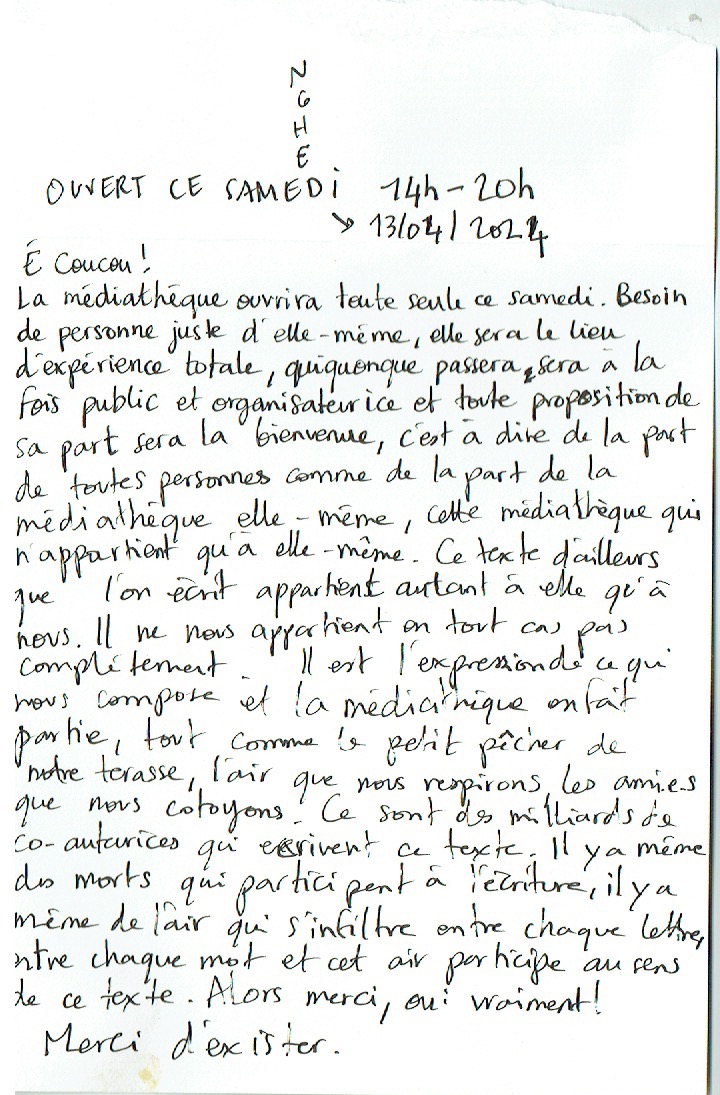 N
G
H
E
OUVERT CE SAMEDI 14h - 20h
↘ 13/04/2024
É Coucou!
La médiathèque ouvrira toute seule ce samedi. Besoin
de personne juste d'elle-même, elle sera le lieu
d'expérience totale, quiquonque passera, sera à la
fois public et organisateurice et toute proposition de
sa part sera la bienvenue, c'est à dire de la part
de toutes personnes comme de la part de la
médiathèque elle-même, cette médiathèque qui
n'appartient qu'à elle-même. Ce texte d'ailleurs
que l'on écrit appartient autant à elle qu'à
nous. Il ne nous appartient en tout cas pas
complètement. Il est l'expression de ce qui
nous compose et la médiathèque en fait
partie, tout comme le petit pêcher de
notre terasse, l'air que nous respirons, les amies
que nous cotoyons. Ce sont des milliards de
co-auturices qui escrivent ce texte. Il y a même
des morts qui participent à l'écriture, il y a
même de l'air qui s'infiltre entre chaque lettre,
ntre chaque mot et cet air participe au sens
de ce texte. Alors merci, oui vraiment!
Merci d'exister.